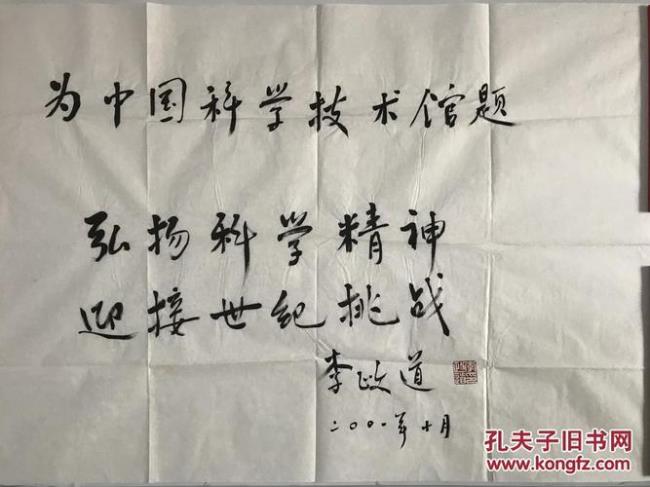 为中国科学技术馆题
弘扬科学精神
迎接世纪挑战
李政道
二〇〇〇年十月
孔夫子旧书网
www.kongfz.com